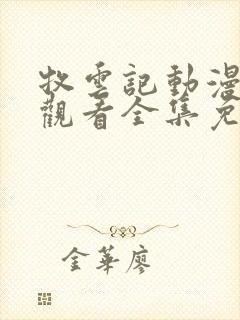 牧雲記動漫
觀看全集免
金華廖